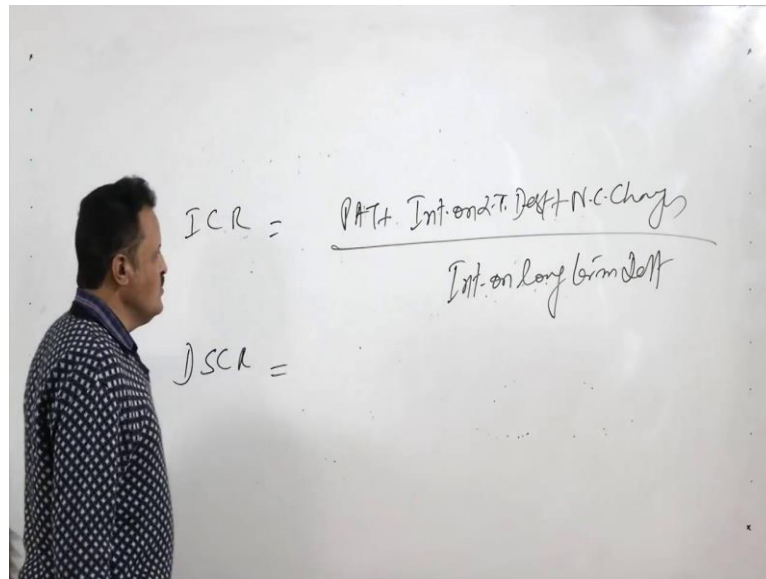 ICR = PAT+ Int. on L.T. Debt + N.C. Charges
Int. on long term debt
DSCR =